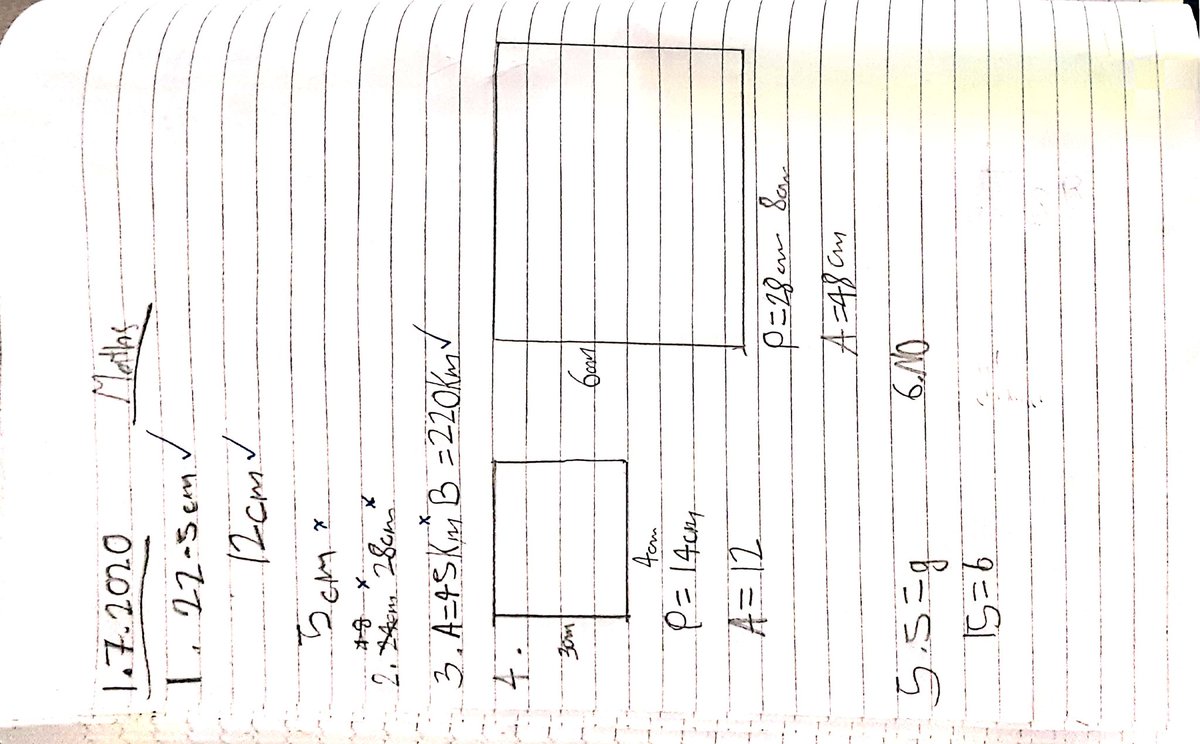 1.7.2020 Maths
1. 22.5cm ✓
12cm ✓
5cm ×
2. 28cm ×
3. A=45km × B=220km ✓
4.
3cm
4cm
P=14cm
A=12
6cm
8cm
P=28cm
A=48cm
5. 5=g 6. NO
15=6